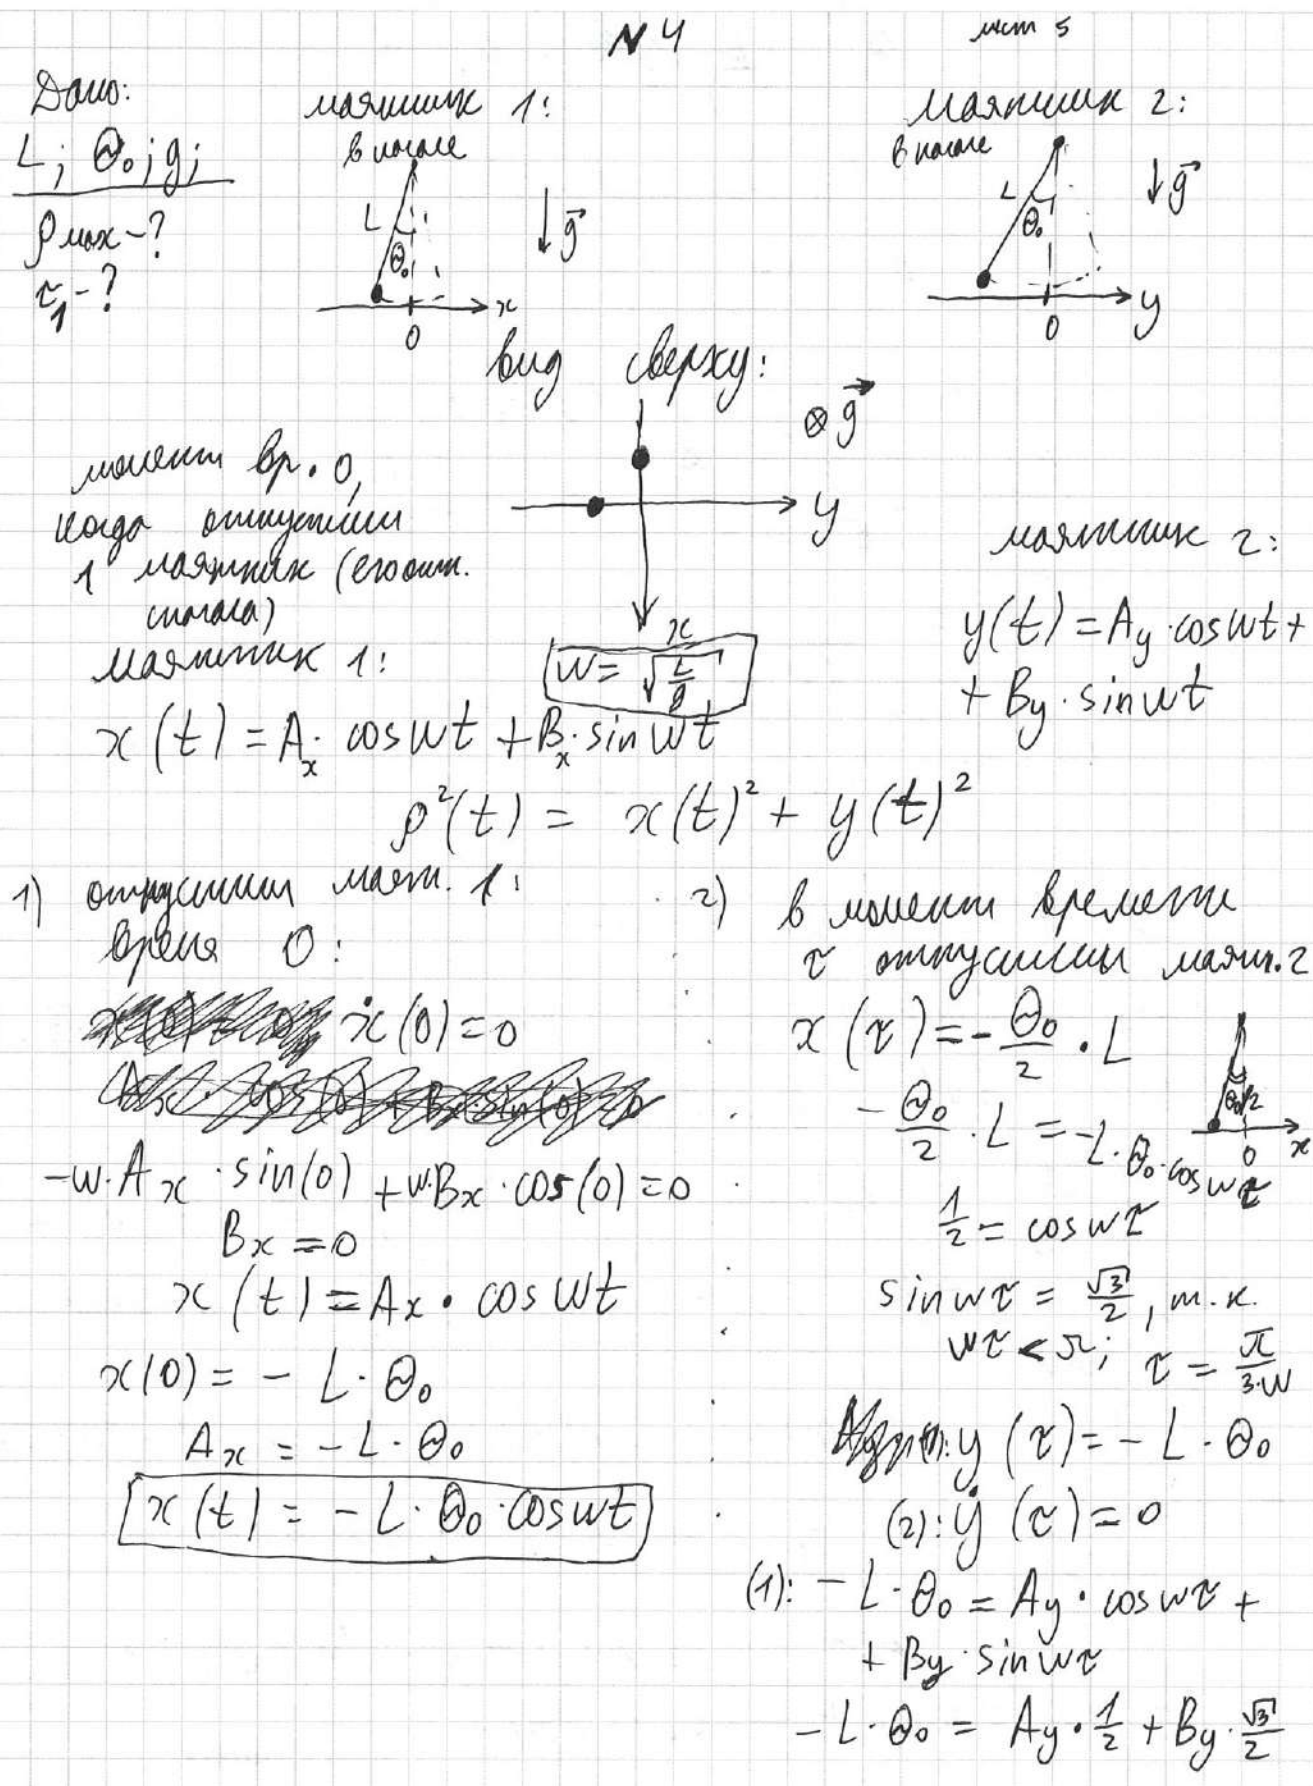 N 4
лист 5
Дано:
L; Θ₀; g;
ρ max - ?
τ₁ - ?
маятник 1:
в начале
L
Θ₀
g⃗
x
0
маятник 2:
в начале
L
Θ₀
g⃗
y
0
вид сверху:
⊗ g⃗
y
x
момент вр. 0,
когда отпустили
1 маятник (его отп.
сначала)
маятник 1:
w = √(L/g)
x(t) = Aₓ · cos wt + Bₓ · sin wt
маятник 2:
y(t) = A_y · cos wt +
+ B_y · sin wt
ρ²(t) = x(t)² + y(t)²
1) отпустили маят. 1:
время 0:
ẋ(0) = 0
-w · Aₓ · sin(0) + w·Bₓ · cos(0) = 0
Bₓ = 0
x(t) = Aₓ · cos wt
x(0) = - L · Θ₀
Aₓ = - L · Θ₀
x(t) = - L · Θ₀ · cos wt
2) в момент времени
τ отпустили маят. 2
x(τ) = - Θ₀/2 · L
Θ₀/2
0
x
- Θ₀/2 · L = - L · Θ₀ · cos wτ
1/2 = cos wτ
sin wτ = √3/2, т.к.
wτ < π; τ = π/(3·w)
y(τ) = - L · Θ₀
(2): ẏ(τ) = 0
(1): - L · Θ₀ = A_y · cos wτ +
+ B_y · sin wτ
- L · Θ₀ = A_y · 1/2 + B_y · √3/2